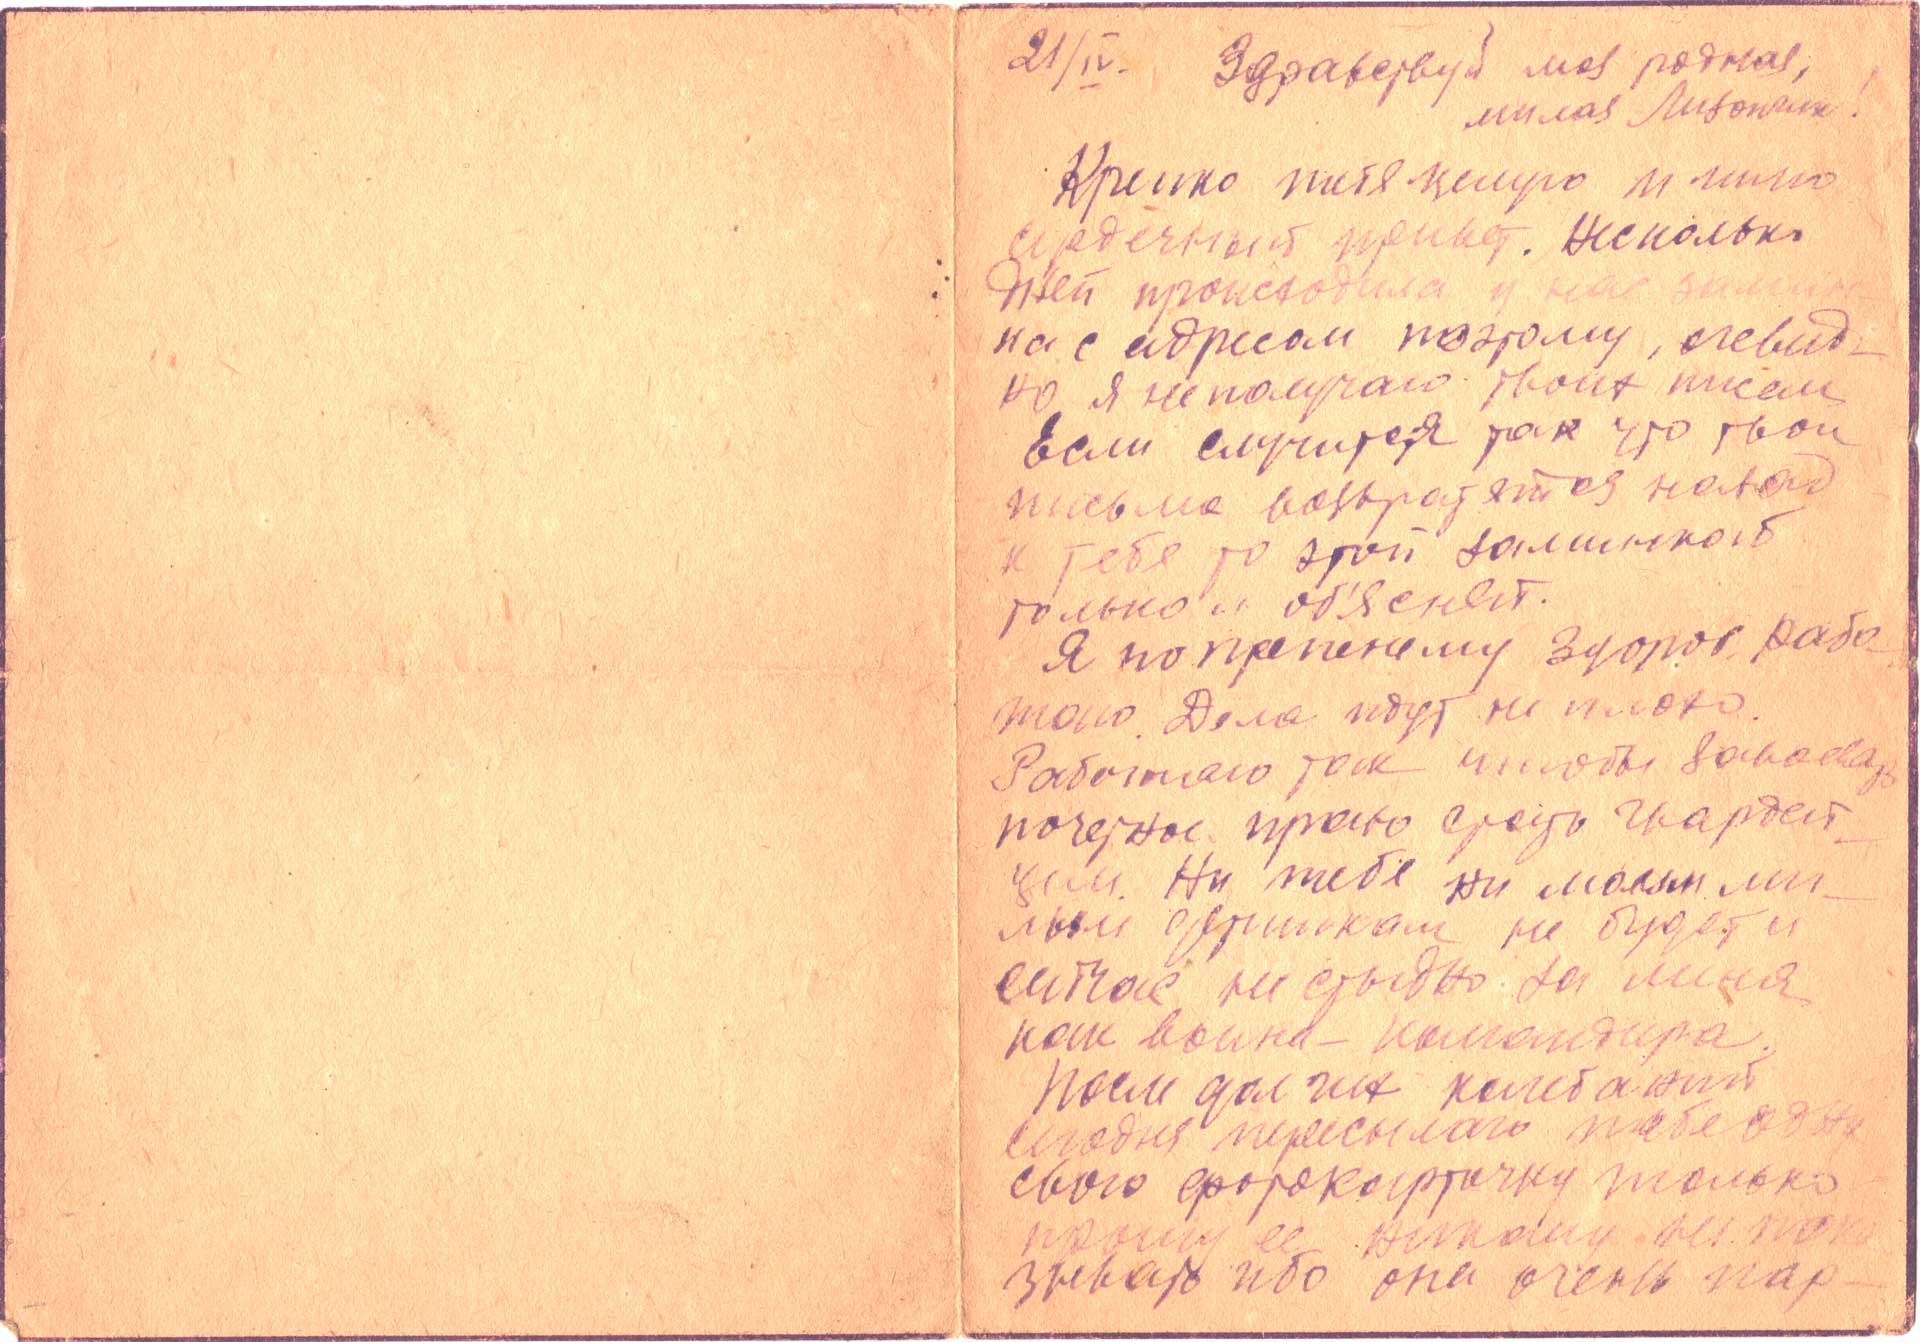 21/IV. Здравствуй моя родная,
милая Лизончик!
Крепко тебя целую и шлю
сердечный привет. Несколько
дней происходила у нас замин-
ка с адресом поэтому, очевид-
но я не получаю твоих писем
Если случится так что твои
письма возвратятся назад
к тебе то этой заминкой
только и об'яснят.
Я по прежнему здоров, рабо
таю. Дела идут не плохо.
Работаю так чтобы завоевать
почетное право стать гвардей-
цем. Ни тебе ни моим ми-
лым детишкам не будет и
сейчас не стыдно за меня
как воина - командира.
После долгих колебаний
сегодня пересылаю тебе одну
свою фотокарточку только
прошу ее никому не пока
зывать ибо она очень пар-